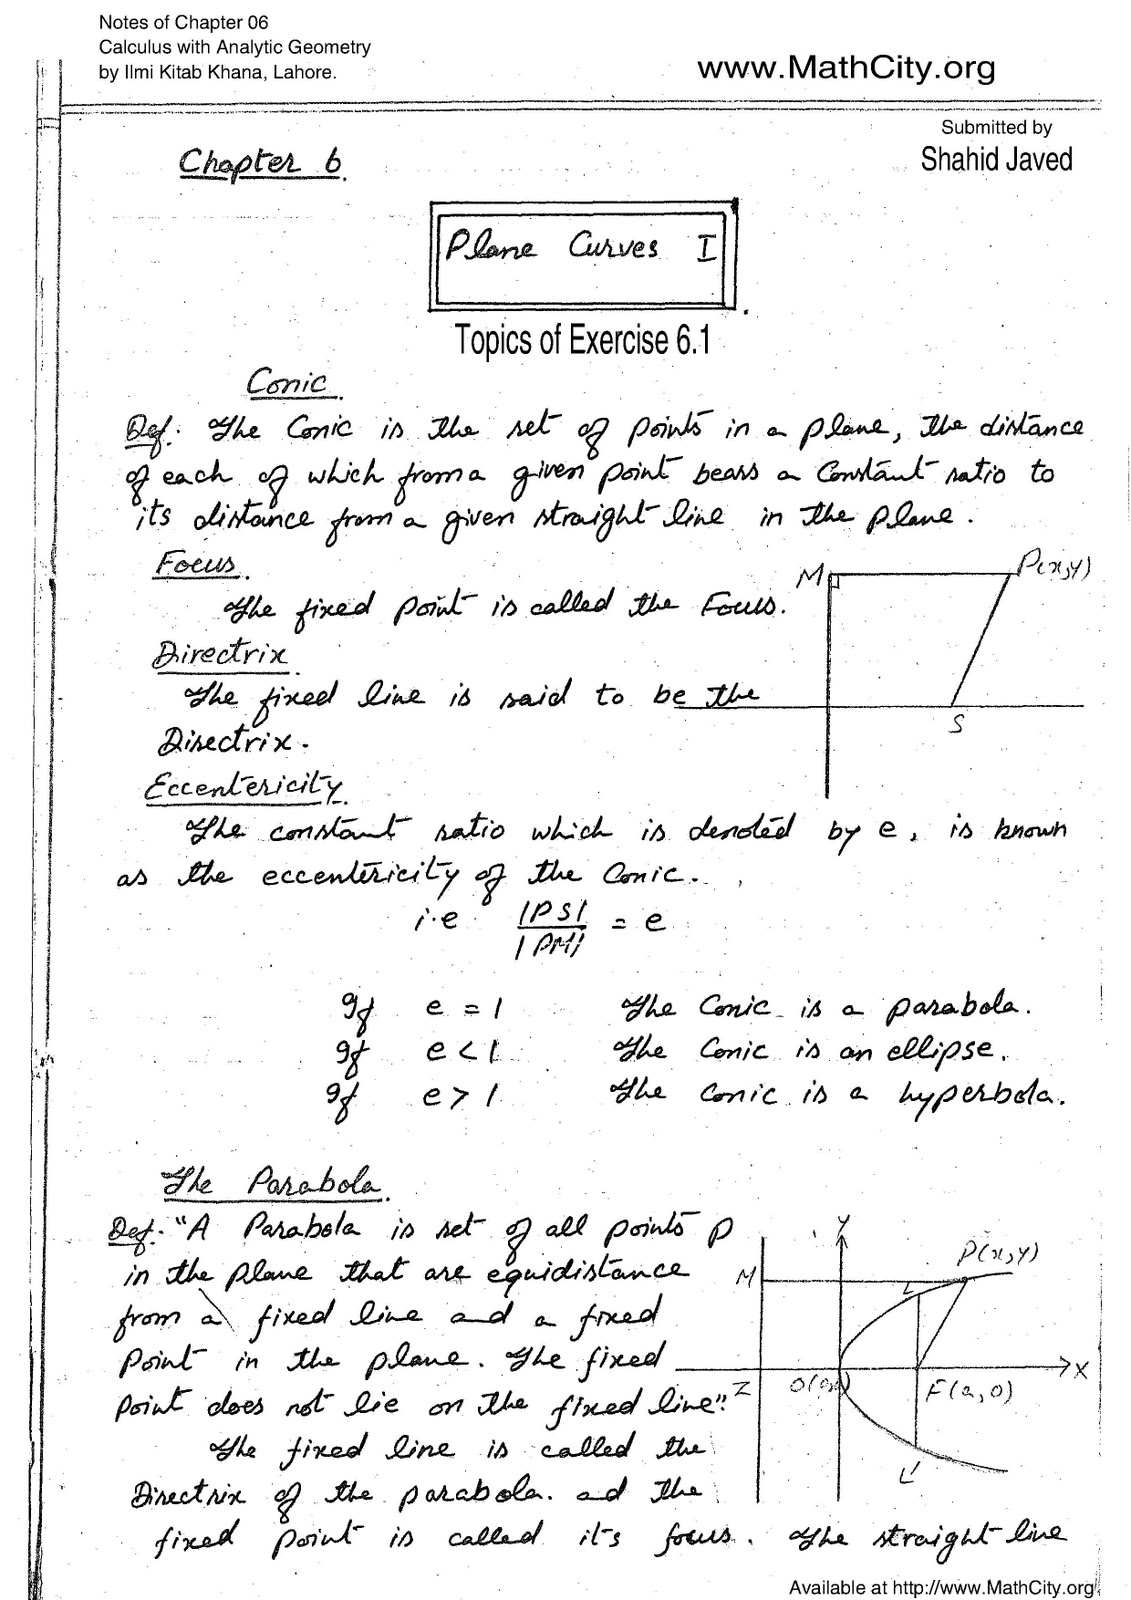 Notes of Chapter 06
Calculus with Analytic Geometry
by Ilmi Kitab Khana, Lahore.
www.MathCity.org
Submitted by
Shahid Javed
Chapter 6.
Plane Curves I
Topics of Exercise 6.1
Conic.
Def: The Conic is the set of points in a plane, the distance
of each of which from a given point bears a Constant ratio to
its distance from a given straight line in the plane.
Focus.
The fixed point is called the Focus.
M P(x,y)
Directrix.
The fixed line is said to be the
S
Directrix.
Eccentericity.
The constant ratio which is denoted by e, is known
as the eccentericity of the Conic.
i.e |PS| / |PM| = e
If e = 1 The Conic is a parabola.
If e < 1 The Conic is an ellipse.
If e > 1 The Conic is a hyperbola.
The Parabola.
Def: "A Parabola is set of all points P
in the plane that are equidistance
from a fixed line and a fixed
Point in the plane. The fixed
point does not lie on the fixed line".
Y
P(x,y)
M L
X
Z O(0,0) F(a,0)
L'
The fixed line is called the
Directrix of the parabola. ad the
fixed point is called it's focus. The straight line
Available at http://www.MathCity.org